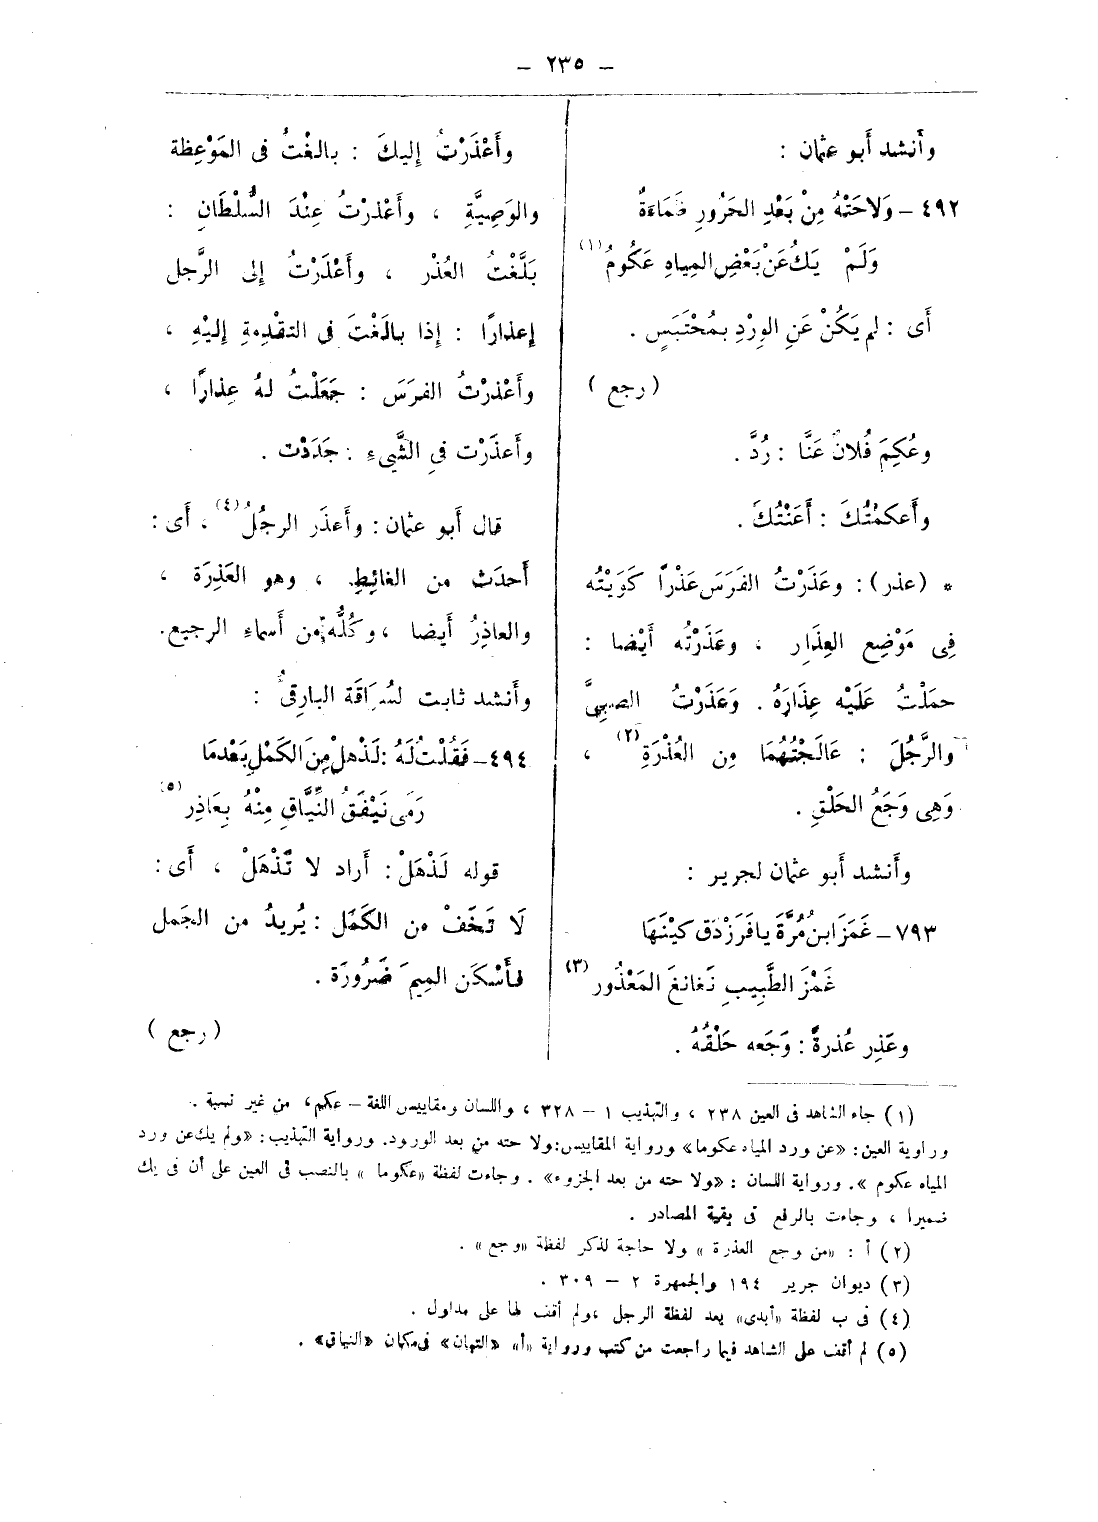 – ٢٣٥ –
وأَنشد أَبو عثمان :
٤٩٢ – وَلَاحَتْهُ مِنْ بَعْدِ الحَرُورِ ظَمَاءَةٌ
وَلَمْ يَكُ عَنْ بَعْضِ المِيَاهِ عَكُومُ (١)
أَى : لم يَكُنْ عَنِ الوِرْدِ بمُحْتَبَسٍ .
( رجع )
وعُكِمَ فُلانٌ عَنَّا : رُدَّ .
وأَعكمْتُكَ : أَعَنْتُكَ .
* (عذر) : وعَذَرْتُ الفَرَسَ عَذْرًا كَوَيْتُه
فِى مَوْضِع العِذَارِ ، وعَذَرْتُه أَيْضا :
حمَلْتُ عَلَيْه عِذَارَهُ . وَعَذَرْتُ الصبِىَّ
والرَّجُلَ : عَالَجْتُهُمَا مِن العُذْرَةِ (٢) ،
وَهِى وَجَعُ الحَلْقِ .
وأَنشد أَبو عثمان لجرير :
٧٩٣ – غَمَزَ ابنُ مُرَّةَ يافَرَزْدَق كَيْنَهَا
غَمْزَ الطَّبِيبِ نَغانغَ المَعْذُور (٣)
وعَذِر عُذرةً : وَجَعه حَلْقُهُ .
وأَعْذَرْتُ إليكَ : بالغْتُ فى المَوْعِظة
والوَصِيَّةِ ، وأَعْذرْتُ عِنْدَ السُّلْطَانِ :
بَلَّغْتُ العُذْر ، وأَعْذَرْتُ إلى الرَّجل
إعذارًا : إذا بالَغْتَ فى التقْدِمةِ إليْهِ ،
وأَعْذرْتُ الفرَسَ : جَعَلْتُ لهُ عِذارًا ،
وأَعذَرْت فىِ الشَّىءِ : جَدَدْت .
قال أَبو عثمان : وأَعذَر الرجُلُ (٤) ، أَى :
أَحدَث من الغائِطِ ، وهو العَذِرَة ،
والعاذِرُ أيضا ، وكُلُّه من أَسماءِ الرجيع.
وأَنشد ثابت لسُرَاقَة البارِقىِّ :
٤٩٤ – فَقُلْتُ لَهُ : لَذْهلْ مِنَ الكَمْلِ بَعْدمَا
رَمَى نَيْفَقُ النِّيَّاقِ مِنْهُ بِعَاذِر (٥)
قوله لَذْهَلْ : أَراد لا تَذْهَلْ ، أَى :
لَا تَخَفْ من الكَمَل : يُريدُ من الجَمل
فأَسْكَن المِيمَ ضَرُورَة .
( رجع )
(١) جاء الشاهد فى العين ٢٣٨ ، والتهذيب ١ – ٣٢٨ ، واللسان ومقاييس اللغة – عكم، من غير نسبة .
وراوية العين : «عن ورد المياه عكوما» ورواية المقاييس: ولا حته من بعد الورود. ورواية التهذيب : «ولم يك عن ورد
المياه عكوم ». ورواية اللسان : «ولا حته من بعد الجزوء» . وجاءت لفظة «عكوما » بالنصب فى العين على أن فى يك
ضميرا ، وجاءت بالرفع فى بقية المصادر .
(٢) أ : «من وجع العذرة » ولا حاجة لذكر لفظة «وجع » .
(٣) ديوان جرير ١٩٤ والجمهرة ٢ – ٣٠٩ .
(٤) فى ب لفظة «أبدى» بعد لفظة الرجل ، ولم أقف لها على مدلول .
(٥) لم أقف على الشاهد فيما راجعت من كتب ورواية «أ» «التهان» فى مكان «النياق» .